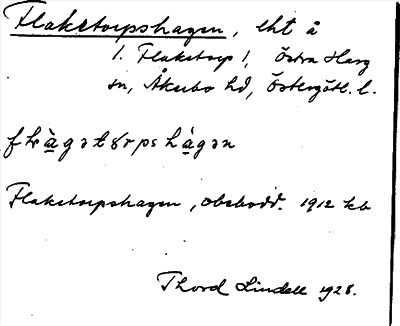 Flaketorpshagen, lht å
1. Flaketorp 1, Östra Harg
sn, Åkerbo hd, Östergötl. l.
Flaketorpshagen, obebodd. 1912 kb
Thord Lindell 1928.